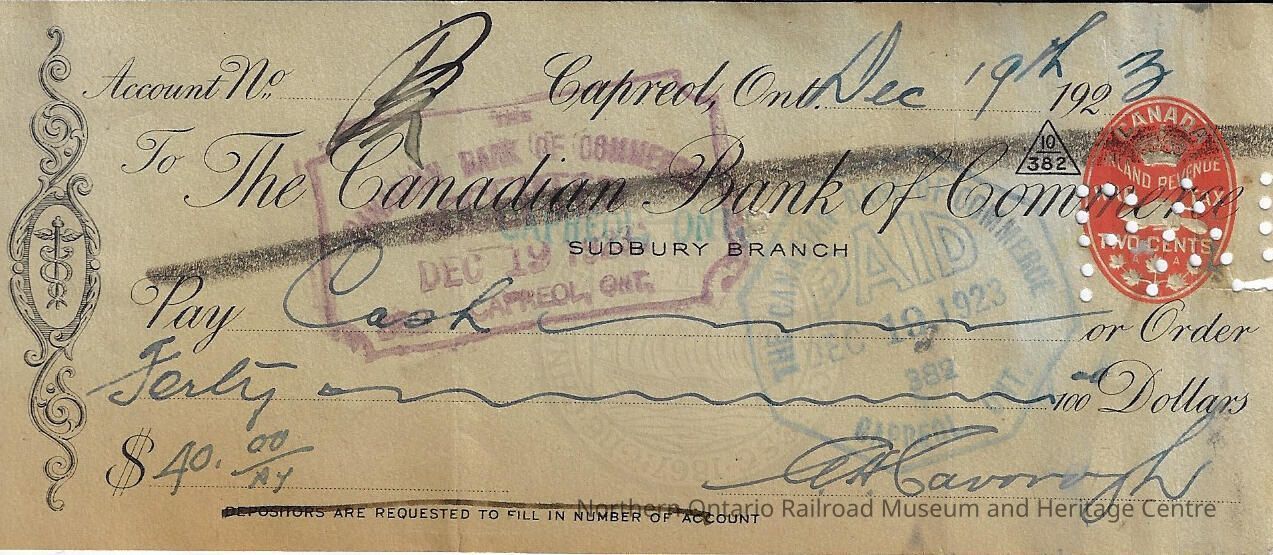 Account No.
Capreol, Ont. Dec 19th 1923
10
382
CANADA
INLAND REVENUE
TAX
TWO CENTS
To The Canadian Bank of Commerce
SUDBURY BRANCH
THE
CANADIAN BANK OF COMMERCE
DEC 19
CAPREOL, ONT.
CAPREOL ON
THE CANADIAN BANK OF COMMERCE
PAID
DEC 19 1923
382
CAPREOL ONT.
Pay Cash or Order
Forty 00/100 Dollars
$40.00
AH Cavorogh
DEPOSITORS ARE REQUESTED TO FILL IN NUMBER OF ACCOUNT
Northern Ontario Railroad Museum and Heritage Centre